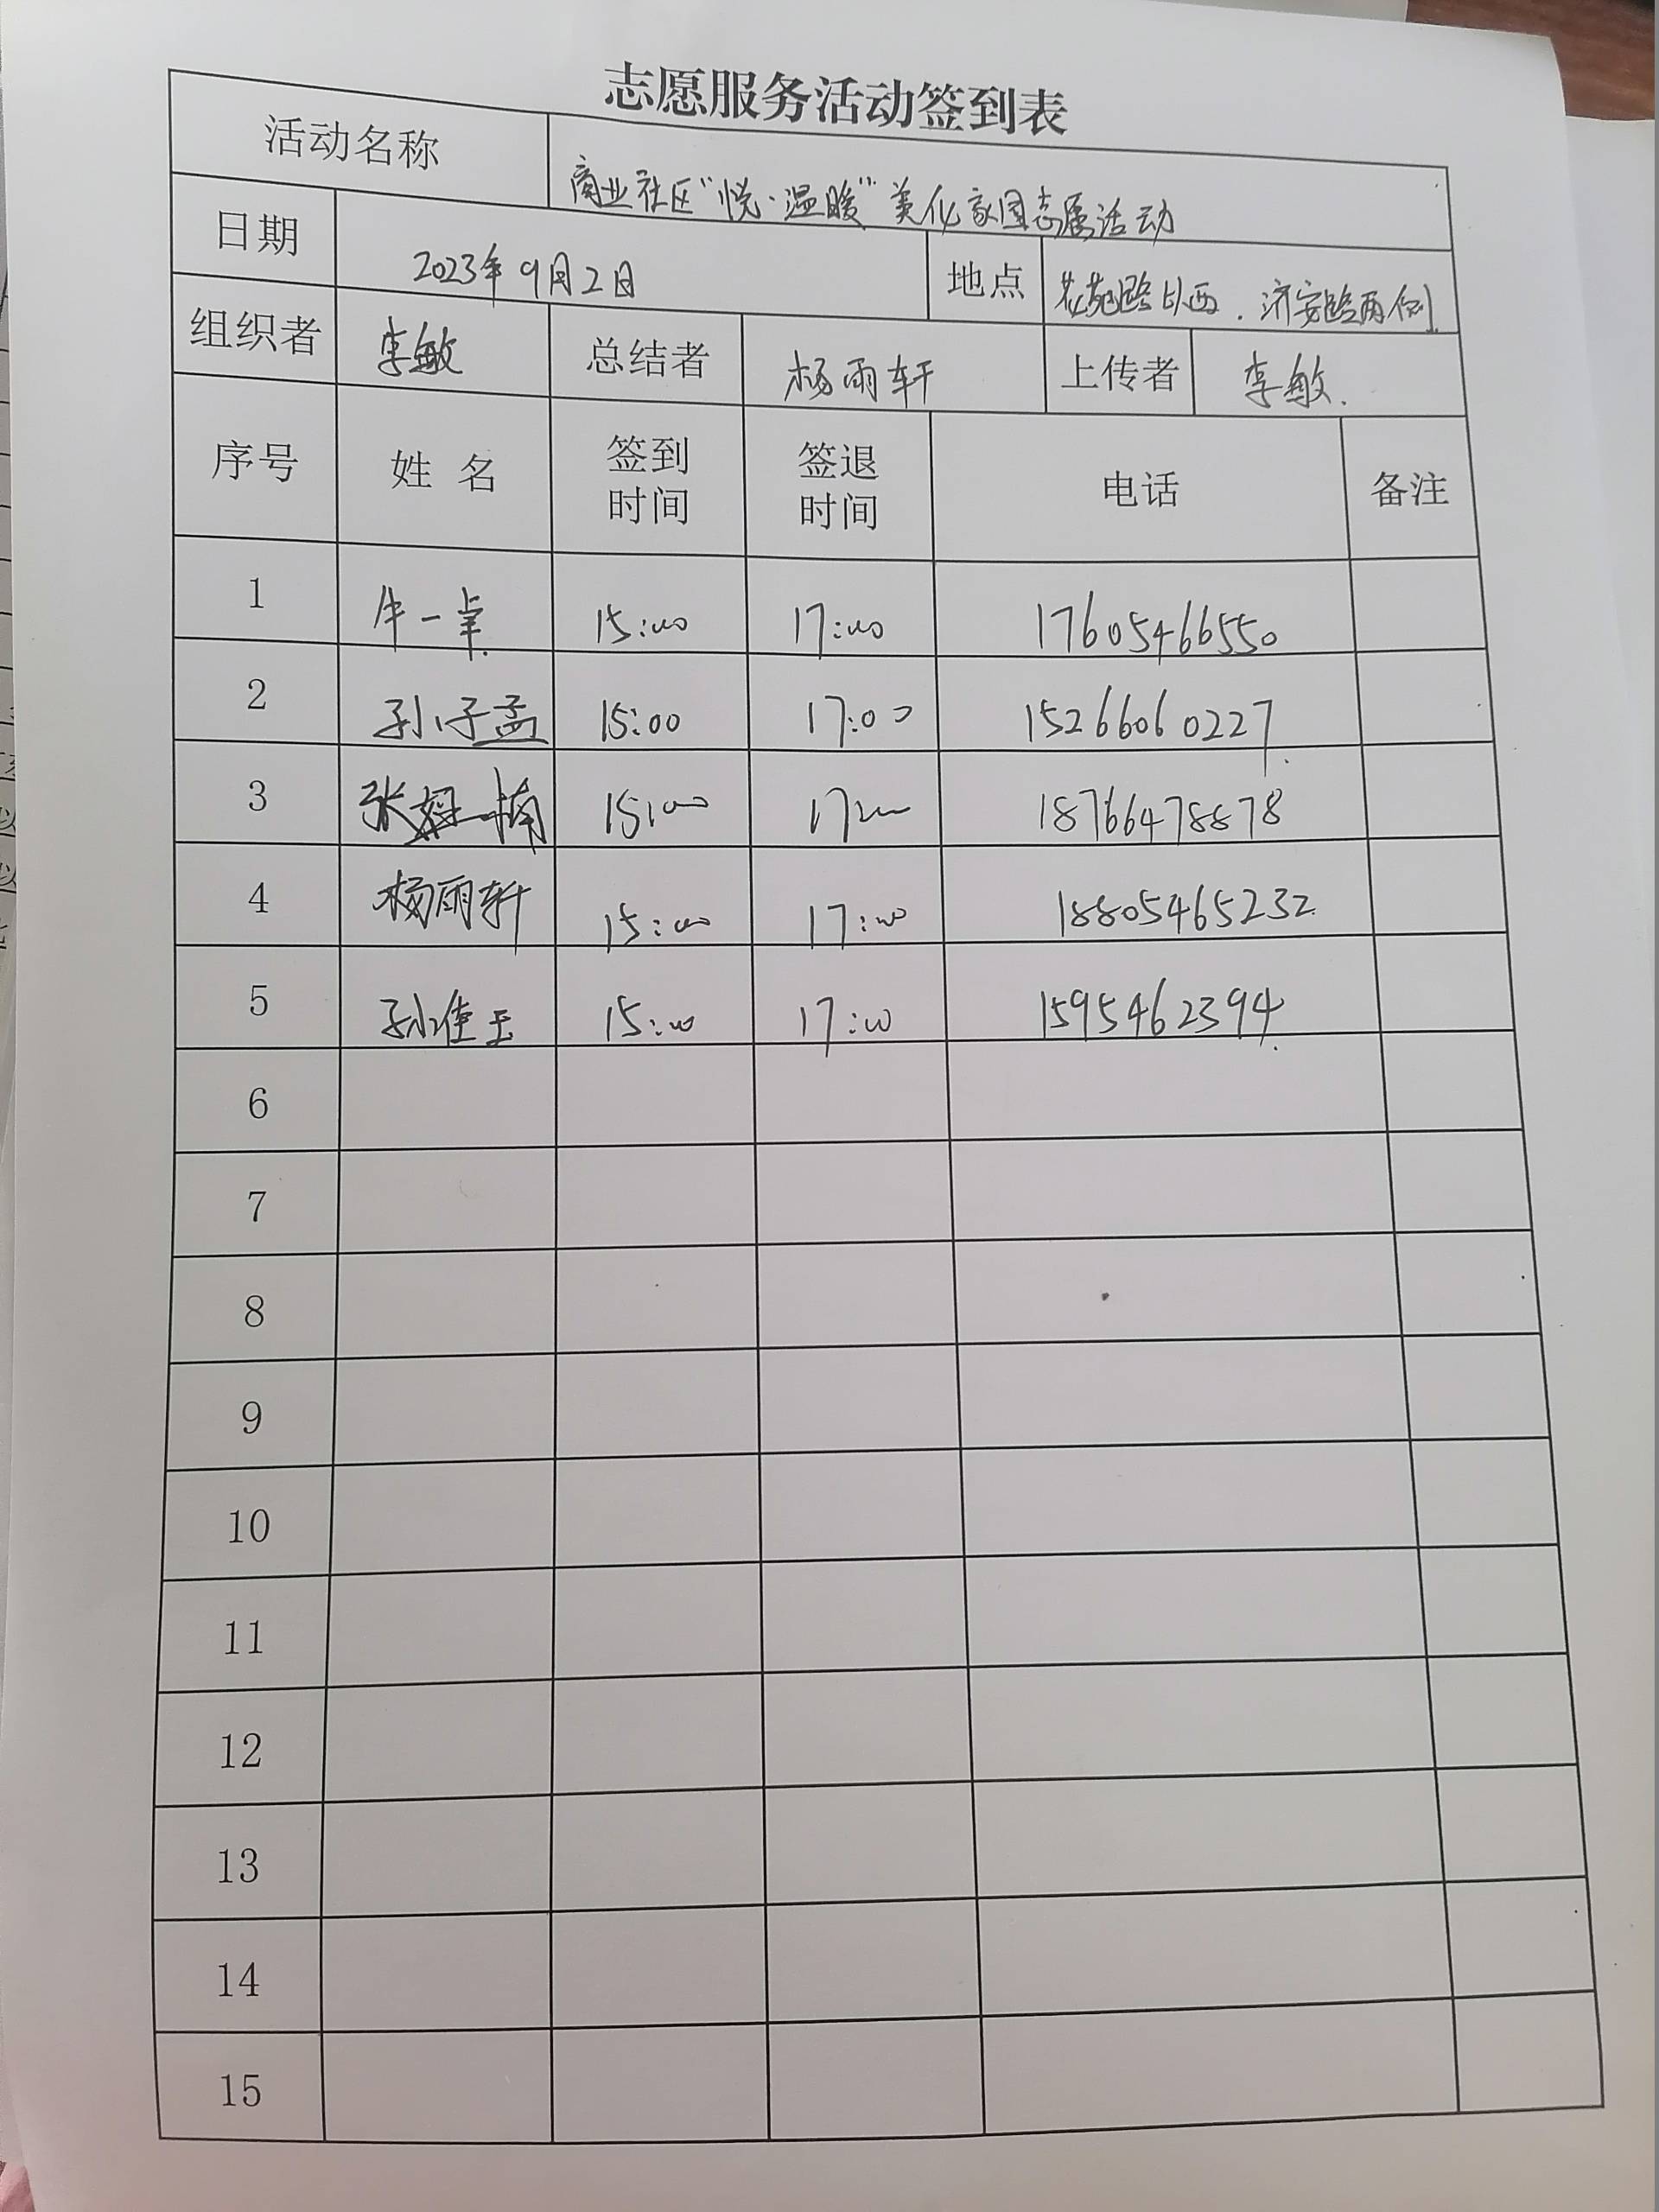 志愿服务活动签到表
活动名称 商业社区“悦·温暖”美化家园志愿活动
日期 2023年9月2日 地点 花苑路以西、济安路两侧
组织者 李敏 总结者 杨雨轩 上传者 李敏
序号 姓名 签到时间 签退时间 电话 备注
1 牛一卓 15:00 17:00 17605466550
2 孙子孟 15:00 17:00 15266060227
3 张 楠 15:00 17:00 18766478878
4 杨雨轩 15:00 17:00 18805465232
5 孙佳玉 15:00 17:00 1595462394
6
7
8
9
10
11
12
13
14
15